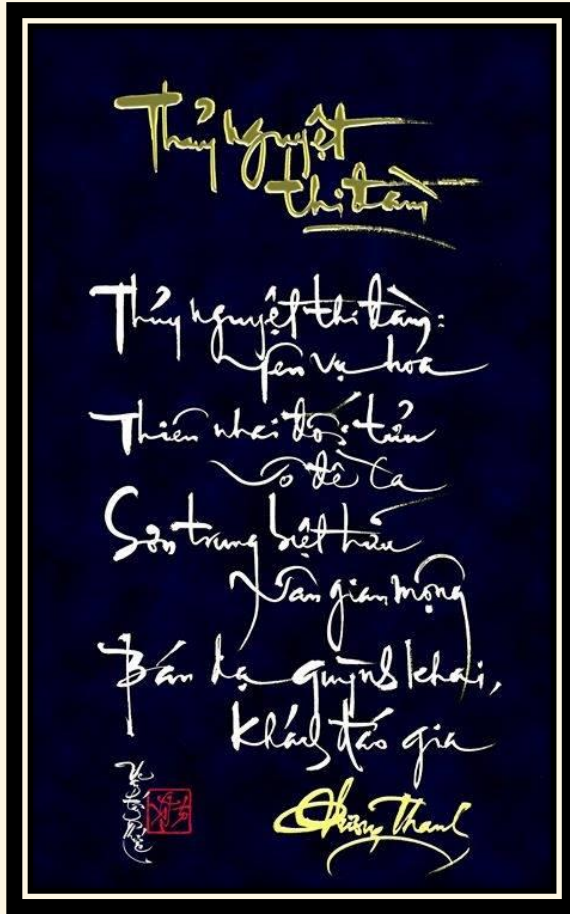 Thủy nguyệt
thi đàm
Thủy nguyệt thi đàm:
yên vụ hoa
Thiên nhai đối tửu
vô đề ca
Sơn trung biệt hữu
Vân gian mộng
Bán dạ quỳnh khai,
khách đáo gia
Thanh